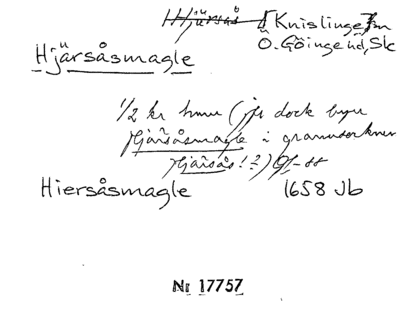 Hjärsås [Knislinge] sn
Ö. Göinge hd, Sk
Hjärsåsmagle
1/2 kr hmn (jfr dock byn
Hjärsåsmagle i grannsocknen
Hjärsås!?)
Hiersåsmagle 1658 Jb
Nr 17757